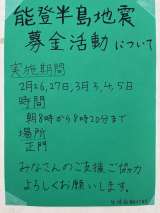 能登半島地震
募金活動について
実施期間
2月26,27日,3月3,4,5日
時間
朝8時から8時20分まで
場所
正門
みなさんのご支援、ご協力
よろしくお願いします。